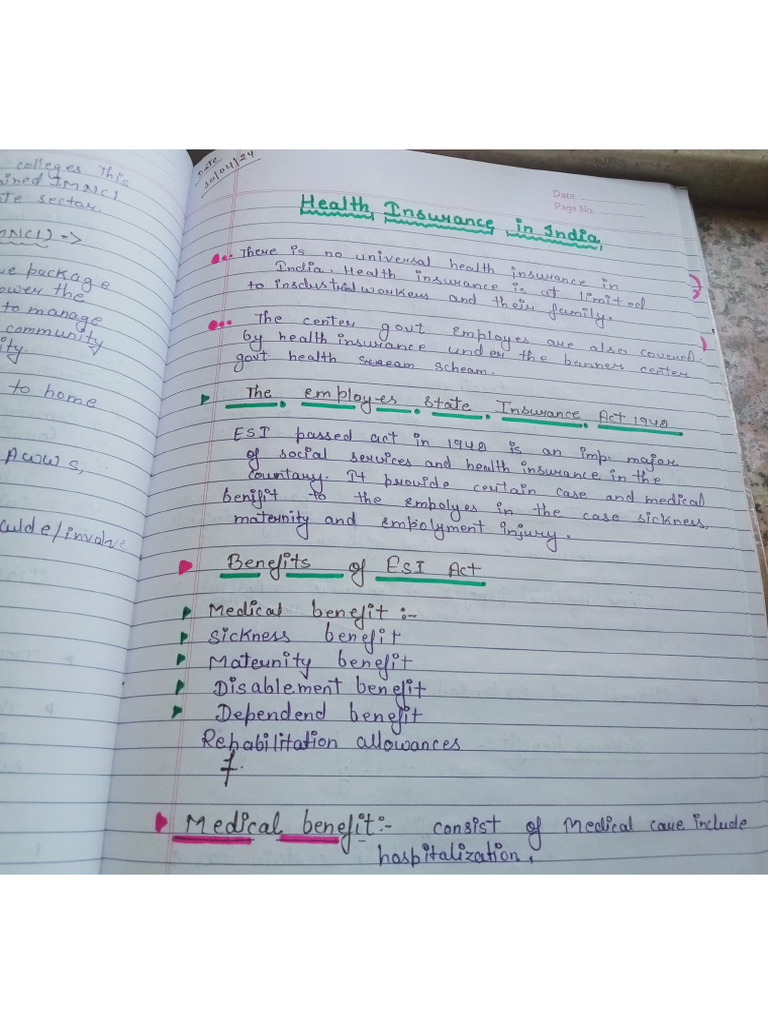 colleges This
ained IMNCI
te sector.
MNCI) =>
ue package
ower the
to manage
community
ity
to home
AWWS,
culde/involve
Date
10/04/24
Date
Page No.
Health Insurance in India,
There is no universal health insurance in
India. Health insurance is at limited
to insdustrial workers and their family.
The center govt employes are also covered.
by health insurance under the banner center
govt health scheam.
The employes state Insurance Act 1948
ESI passed act in 1948 is an imp. major
of social services and health insurance in the
countary. It provide certain case and medical
benifit to the empolyes in the case sickness,
maternity and empolyment injury.
Benefits of ESI Act
Medical benefit :-
Sickness benefit
Maternity benefit
Disablement benefit
Dependend benefit
Rehabilitation allowances
7.
Medical benefit:- consist of Medical care include
hospitalization,